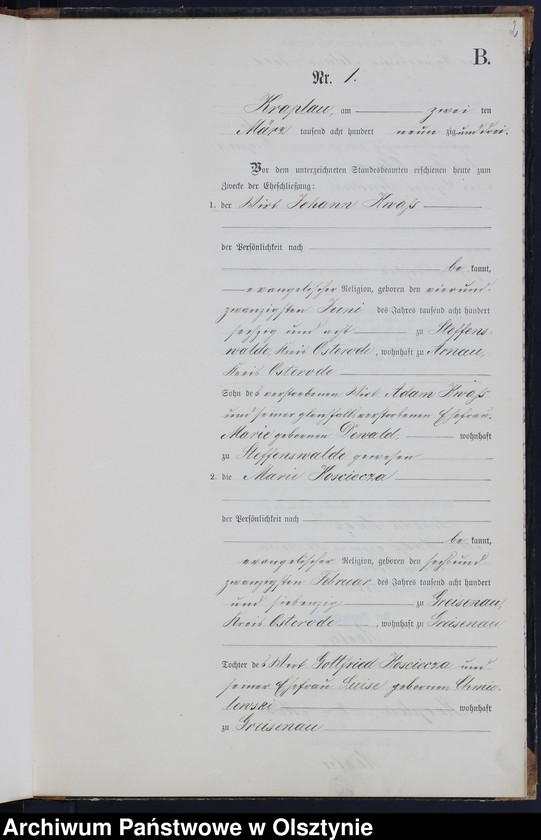 2
B.
Nr. 1.
Kraplau, am zwei ten
März tausend acht hundert neun zig und drei.
Vor dem unterzeichneten Standesbeamten erschienen heute zum
Zwecke der Eheschließung:
1. der Wirt Johann Kwaß
der Persönlichkeit nach
be kannt,
evangelischer Religion, geboren den vierund-
zwanzigsten Juni des Jahres tausend acht hundert
sechzig und acht zu Steffens-
walde, Kreis Osterode, wohnhaft zu Arnau,
Kreis Osterode
Sohn des verstorbenen Wirt Adam Kwaß
und seiner gleichfalls verstorbenen Ehefrau
Marie geborenen Dewald, wohnhaft
zu Steffenswalde gewesen
2. die Marie Kosciecza
der Persönlichkeit nach
be kannt,
evangelischer Religion, geboren den sechsund-
zwanzigsten Februar des Jahres tausend acht hundert
und siebenzig zu Greisenau,
Kreis Osterode, wohnhaft zu Greisenau
Tochter des Wirt Gottfried Kosciecza und
seiner Ehefrau Luise geborenen Chmie-
lewski wohnhaft
zu Greisenau
Archiwum Państwowe w Olsztynie